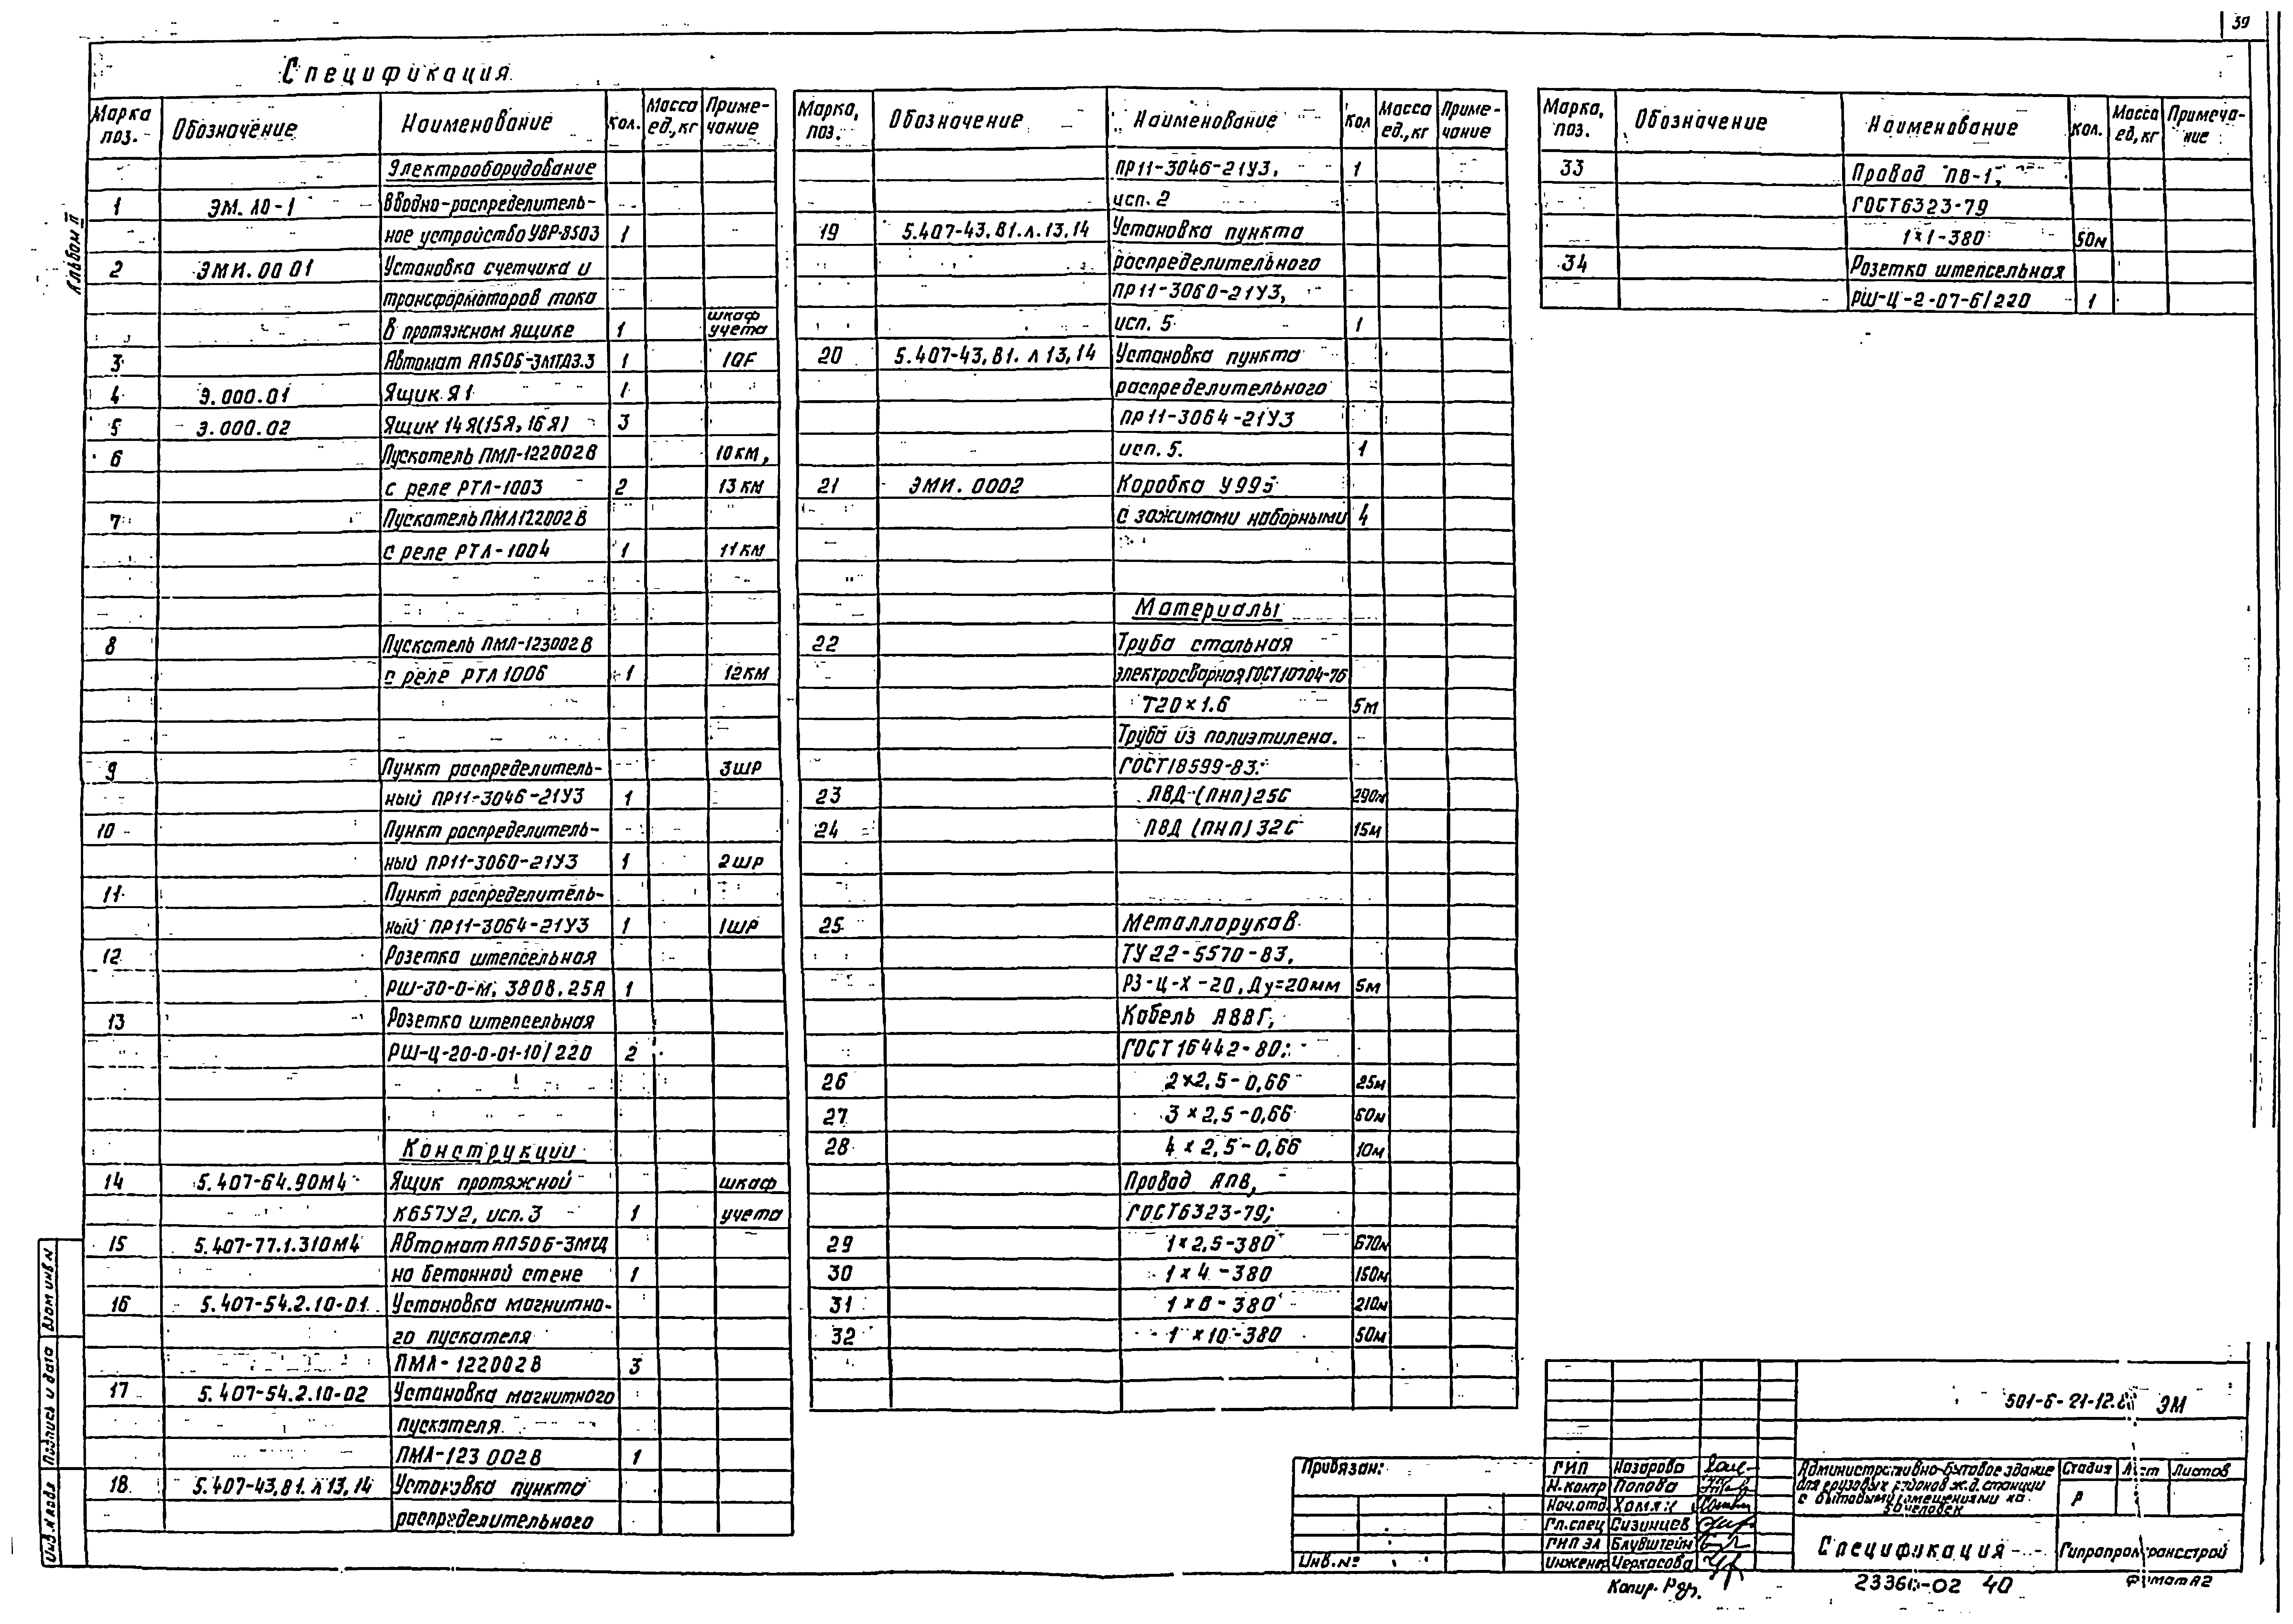 39
Альбом II
Спецификация
Марка поз. Обозначение Наименование Кол. Масса ед., кг Примечание
Электрооборудование
1 ЭМ.ЛО-1 Вводно-распределитель-
ное устройство УВР-8503 1
2 ЭМИ.00 01 Установка счетчика и
трансформаторов тока
в протяжном ящике 1 шкаф учета
3 Автомат АП50Б-3МТД3.3 1 1QF
4 Э.000.01 Ящик Я1 1
5 Э.000.02 Ящик 14Я(15Я, 16Я) 3
6 Пускатель ПМЛ-122002В 10КМ,
с реле РТЛ-1003 2 13КМ
7 Пускатель ПМЛ122002В
с реле РТЛ-1004 1 11КМ
8 Пускатель ПМЛ-123002В
с реле РТЛ1006 1 12КМ
9 Пункт распределитель- 3ШР
ный ПР11-3046-21У3 1
10 Пункт распределитель-
ный ПР11-3060-21У3 1 2ШР
11 Пункт распределитель-
ный ПР11-3064-21У3 1 1ШР
12 Розетка штепсельная
РШ-30-0-М, 380В, 25А 1
13 Розетка штепсельная
РШ-Ц-20-0-01-10/220 2
Конструкции
14 5.407-64.90М4 Ящик протяжной шкаф
К657У2, исп. 3 1 учета
15 5.407-77.1.310М4 Автомат АП50Б-3МТД
на бетонной стене 1
16 5.407-54.2.10-01 Установка магнитно-
го пускателя
ПМЛ-122002В 3
17 5.407-54.2.10-02 Установка магнитного
пускателя
ПМЛ-123 002В 1
18 5.407-43,81. л 13,14 Установка пункта
распределительного
Марка, поз. Обозначение Наименование Кол Масса ед., кг Примечание
ПР11-3046-21У3, 1
исп. 2
19 5.407-43.81.л.13,14 Установка пункта
распределительного
ПР11-3060-21У3,
исп. 5 1
20 5.407-43,81. л 13,14 Установка пункта
распределительного
ПР11-3064-21У3
исп. 5. 1
21 ЭМИ.0002 Коробка У995
с зажимами наборными 4
Материалы
22 Труба стальная
электросварная ГОСТ10704-76
Т20×1.6 5м
Труба из полиэтилена.
ГОСТ18599-83:
23 ПВД (ПНП) 25С 290м
24 ПВД (ПНП) 32С 15м
25 Металлорукав
ТУ 22-5570-83,
РЗ-Ц-Х-20, Ду=20мм 5м
Кабель АВВГ,
ГОСТ 16442-80:
26 2×2,5-0,66 25м
27 3×2,5-0,66 60м
28 4×2,5-0,66 10м
Провод АПВ,
ГОСТ6323-79;
29 1×2,5-380 670м
30 1×4-380 150м
31 1×6-380 210м
32 1×10-380 50м
Марка, поз. Обозначение Наименование Кол. Масса ед, кг Примечание
33 Провод ПВ-1,
ГОСТ6323-79
1×1-380 50м
34 Розетка штепсельная
РШ-Ц-2-07-6/220 1
Взам инв.N
Подпись и дата
Инв.N подл
Привязан:
Инв.N:
ГИП Назарова
Н.контр Попова
Нач.отд
Гл.спец Сизинцев
ГИП ЭЛ Блувштейн
Инженер Черкасова
501-6-21-12. ЭМ
Административно-бытовое здание
для грузовых районов ж.д. станции
с бытовыми помещениями на
50 человек
Стадия Лист Листов
Р
Спецификация
Гипропромтрансстрой
Копир.
-02 40
Формат А2